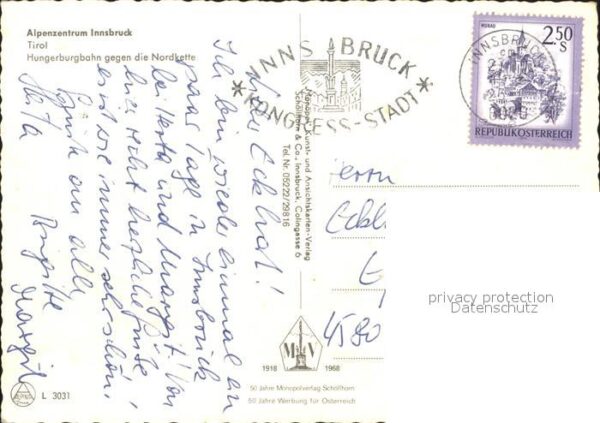 Alpenzentrum Innsbruck
Tirol
Hungerburgbahn gegen die Nordkette
Lieber Eckhat!
Ich bin wieder einmal ein
paar Tage in Innsbruck
bei Herta und Margit! Von
hier recht herzliche Grüße!
es ist wie immer sehr schön!
Grüße an alle
Brigitte
Herta
Margit
L 3031
"Monopol" Kunst- und Ansichtskarten-Verlag
Schöllhorn & Co., Innsbruck, Colingasse 6
Tel. Nr. 05222/29816
MV
1918 1968
50 Jahre Monopolverlag Schöllhorn
50 Jahre Werbung für Österreich
INNSBRUCK
* KONGRESS-STADT *
INNSBRUCK
6020
MURAU
2.50
S
REPUBLIK ÖSTERREICH
Herrn
4580
privacy protection
Datenschutz